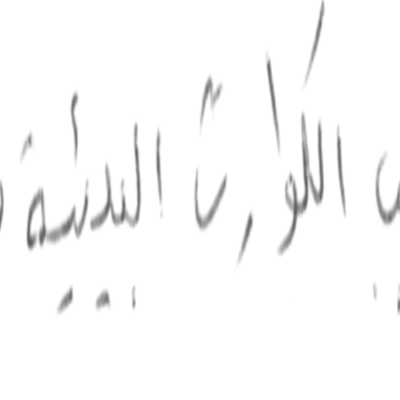 الكوارث البيئية